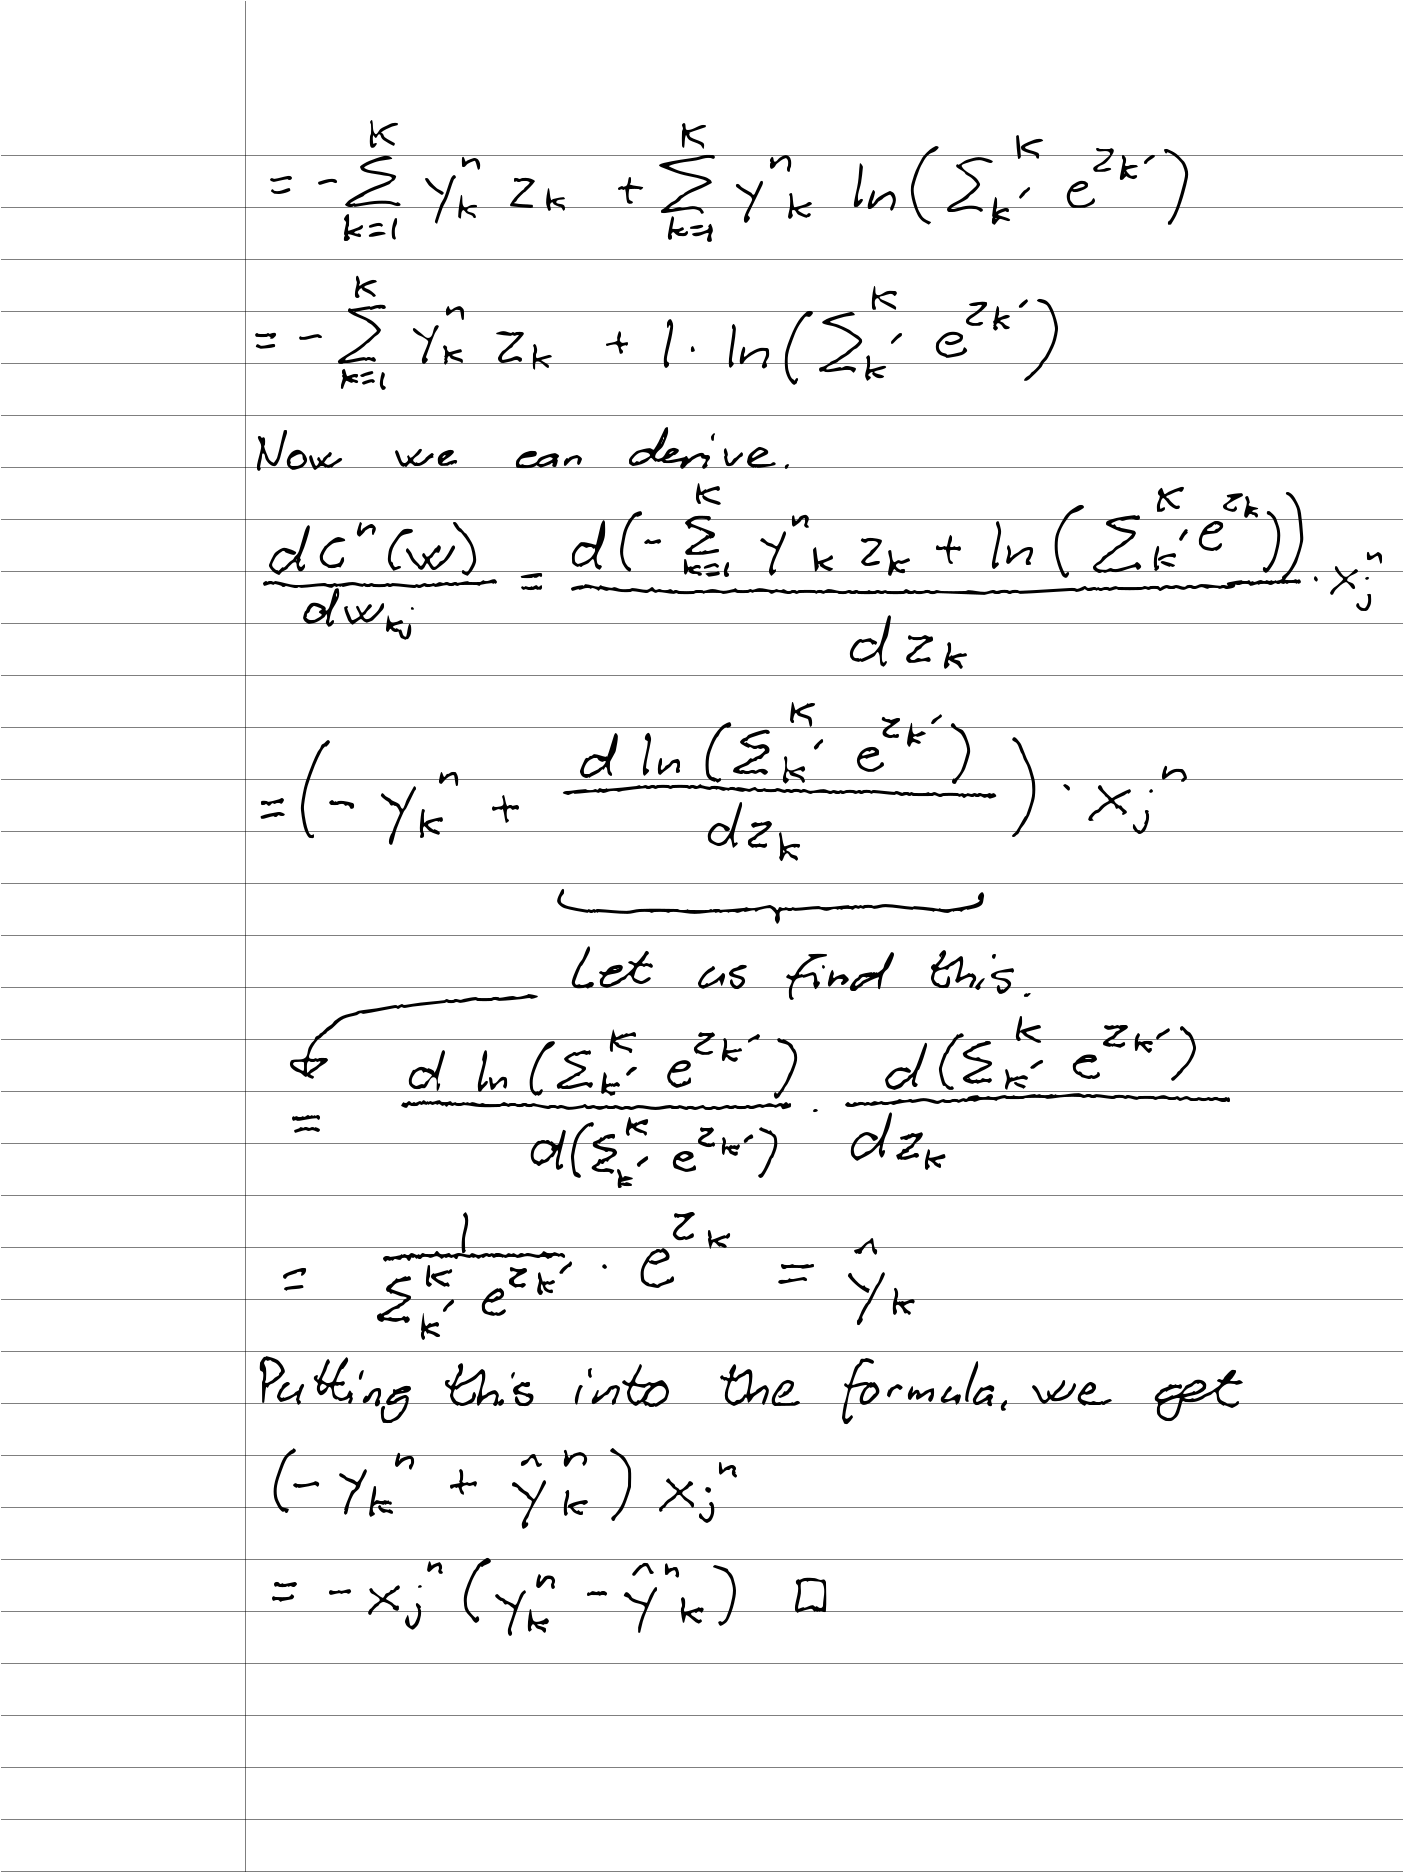 = - \sum_{k=1}^{K} y_k^n z_k + \sum_{k=1}^{K} y_k^n ln(\sum_{k'}^{K} e^{z_{k'}})
= - \sum_{k=1}^{K} y_k^n z_k + 1 · ln(\sum_{k'}^{K} e^{z_{k'}})
Now we can derive.
\frac{dC^n(w)}{dw_{kj}} = \frac{d(- \sum_{k=1}^{K} y_k^n z_k + ln(\sum_{k'}^{K} e^{z_k}))}{dz_k} · x_j^n
= (- y_k^n + \frac{d ln(\sum_{k'}^{K} e^{z_{k'}})}{dz_k}) · x_j^n
Let us find this.
= \frac{d ln(\sum_{k'}^{K} e^{z_{k'}})}{d(\sum_{k'}^{K} e^{z_{k'}})} · \frac{d(\sum_{k'}^{K} e^{z_{k'}})}{dz_k}
= \frac{1}{\sum_{k'}^{K} e^{z_{k'}}} · e^{z_k} = \hat{y}_k
Putting this into the formula, we get
(- y_k^n + \hat{y}_k^n) x_j^n
= - x_j^n (y_k^n - \hat{y}_k^n) □